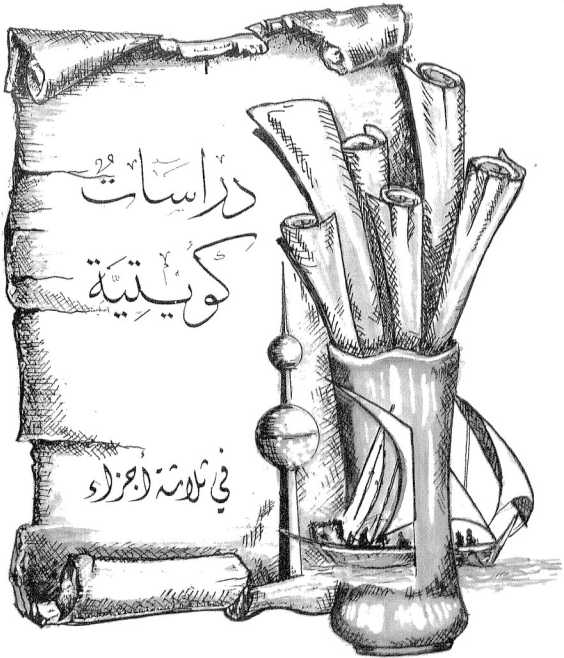 دراسات
كويتية
في ثلاثة أجزاء